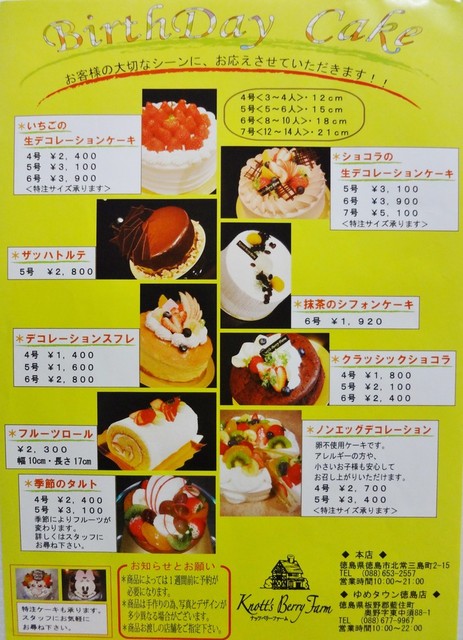 BirthDay Cake
お客様の大切なシーンに、お応えさせていただきます!!
4号<3〜4人>・12cm
5号<5〜6人>・15cm
6号<8〜10人>・18cm
7号<12〜14人>・21cm
*いちごの
生デコレーションケーキ
4号 ¥2,400
5号 ¥3,100
6号 ¥3,900
<特注サイズ承ります>
*ショコラの
生デコレーションケーキ
5号 ¥3,100
6号 ¥3,900
7号 ¥5,100
<特注サイズ承ります>
*ザッハトルテ
5号 ¥2,800
*抹茶のシフォンケーキ
6号 ¥1,920
*デコレーションスフレ
4号 ¥1,400
5号 ¥1,600
6号 ¥2,800
*クラッシックショコラ
4号 ¥1,800
5号 ¥2,100
6号 ¥2,400
*フルーツロール
¥2,300
幅10cm・長さ17cm
*ノンエッグデコレーション
卵不使用ケーキです。
アレルギーの方や、
小さいお子様も安心して
お召し上がりいただけます。
4号 ¥2,700
5号 ¥3,400
<特注サイズ承ります>
*季節のタルト
4号 ¥2,400
5号 ¥3,100
季節によりフルーツが
変わります。
詳しくはスタッフに
お尋ね下さい。
特注ケーキも承ります。
スタッフにお気軽に
お尋ね下さい。
お知らせとお願い
*商品によっては1週間前に予約が
必要になります。
*商品は手作りの為、写真とデザインが
多少異なる場合がございます。
*商品お渡しの店舗をご指定下さい。
Knott's Berry Farm
ナッツ・ベリーファーム
◆ 本店 ◆
徳島県徳島市北常三島町2-15
TEL (088)653-2557
営業時間10:00〜21:00
◆ ゆめタウン徳島店 ◆
徳島県板野郡藍住町
奥野字東中須88-1
TEL (088)677-9967
営業時間10:00〜22:00